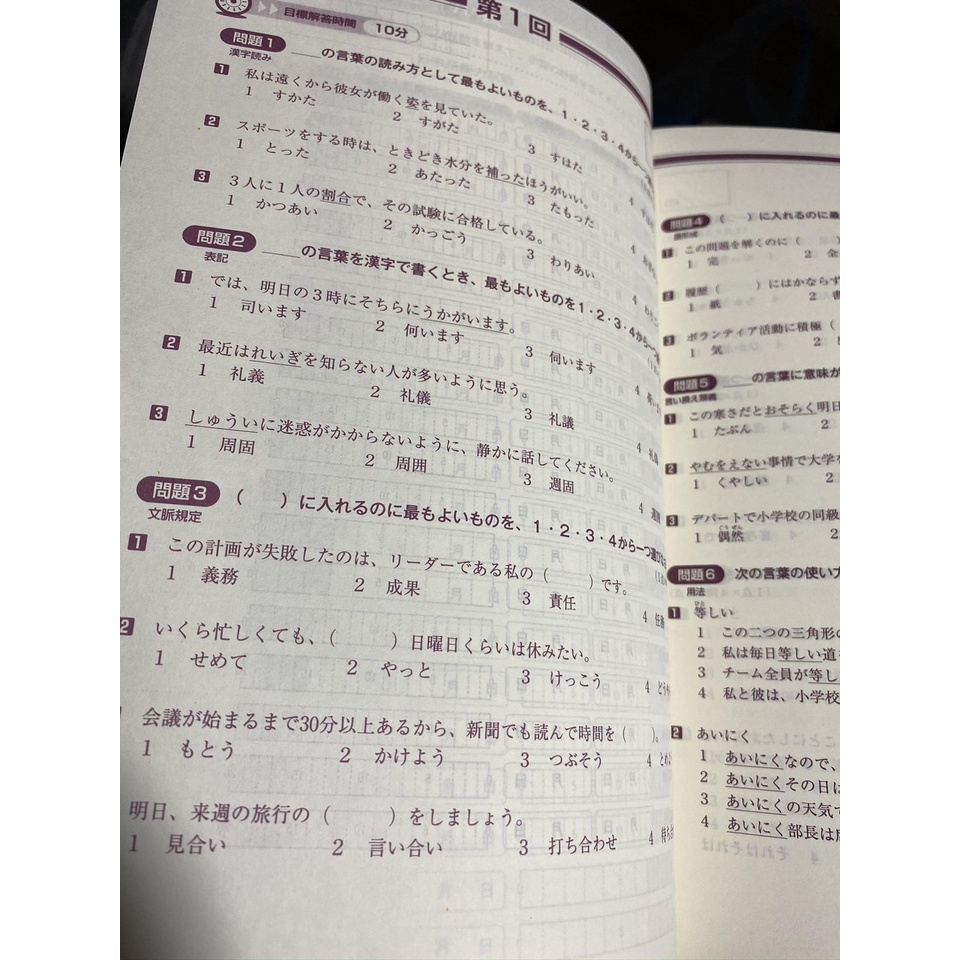 第1回
目標解答時間 10分
問題1 ＿＿の言葉の読み方として最もよいものを、1・2・3・4から一つ
漢字読み
1 私は遠くから彼女が働く姿を見ていた。
1 すかた 2 すがた 3 すはた 4
2 スポーツをする時は、ときどき水分を補ったほうがいい。
1 とった 2 あたった 3 たもった 4
3 3人に1人の割合で、その試験に合格している。
1 かつあい 2 かっごう 3 わりあい 4
問題2 ＿＿の言葉を漢字で書くとき、最もよいものを1・2・3・4から一つ
表記
1 では、明日の3時にそちらにうかがいます。
1 司います 2 何います 3 伺います 4
2 最近はれいぎを知らない人が多いように思う。
1 礼義 2 礼儀 3 礼議 4
3 しゅういに迷惑がかからないように、静かに話してください。
1 周固 2 周囲 3 週固 4
問題3 （　）に入れるのに最もよいものを、1・2・3・4から一つ
文脈規定
1 この計画が失敗したのは、リーダーである私の（　）です。
1 義務 2 成果 3 責任 4 任務
2 いくら忙しくても、（　）日曜日くらいは休みたい。
1 せめて 2 やっと 3 けっこう 4
会議が始まるまで30分以上あるから、新聞でも読んで時間を（　）。
1 もとう 2 かけよう 3 つぶそう 4
明日、来週の旅行の（　）をしましょう。
1 見合い 2 言い合い 3 打ち合わせ 4
問題4 （　）に入れるのに最
語形成
1 この問題を解くのに（
1 完 2 全
2 履歴（　）にはかならず
1 紙 2 書
3 ボランティア活動に積極（
1 気 2
問題5 ＿＿の言葉に意味が
言い換え類義
1 この寒さだとおそらく明日
1 たぶん 2
2 やむをえない事情で大学を
1 くやしい 2
3 デパートで小学校の同級
1 偶然 2
ぐうぜん
問題6 次の言葉の使い方
用法
1 等しい
ひと
1 この二つの三角形の
2 私は毎日等しい道を
3 チーム全員が等し
4 私と彼は、小学校
2 あいにく
1 あいにくなので、
2 あいにくその日に
3 あいにくの天気で
4 あいにく部長は